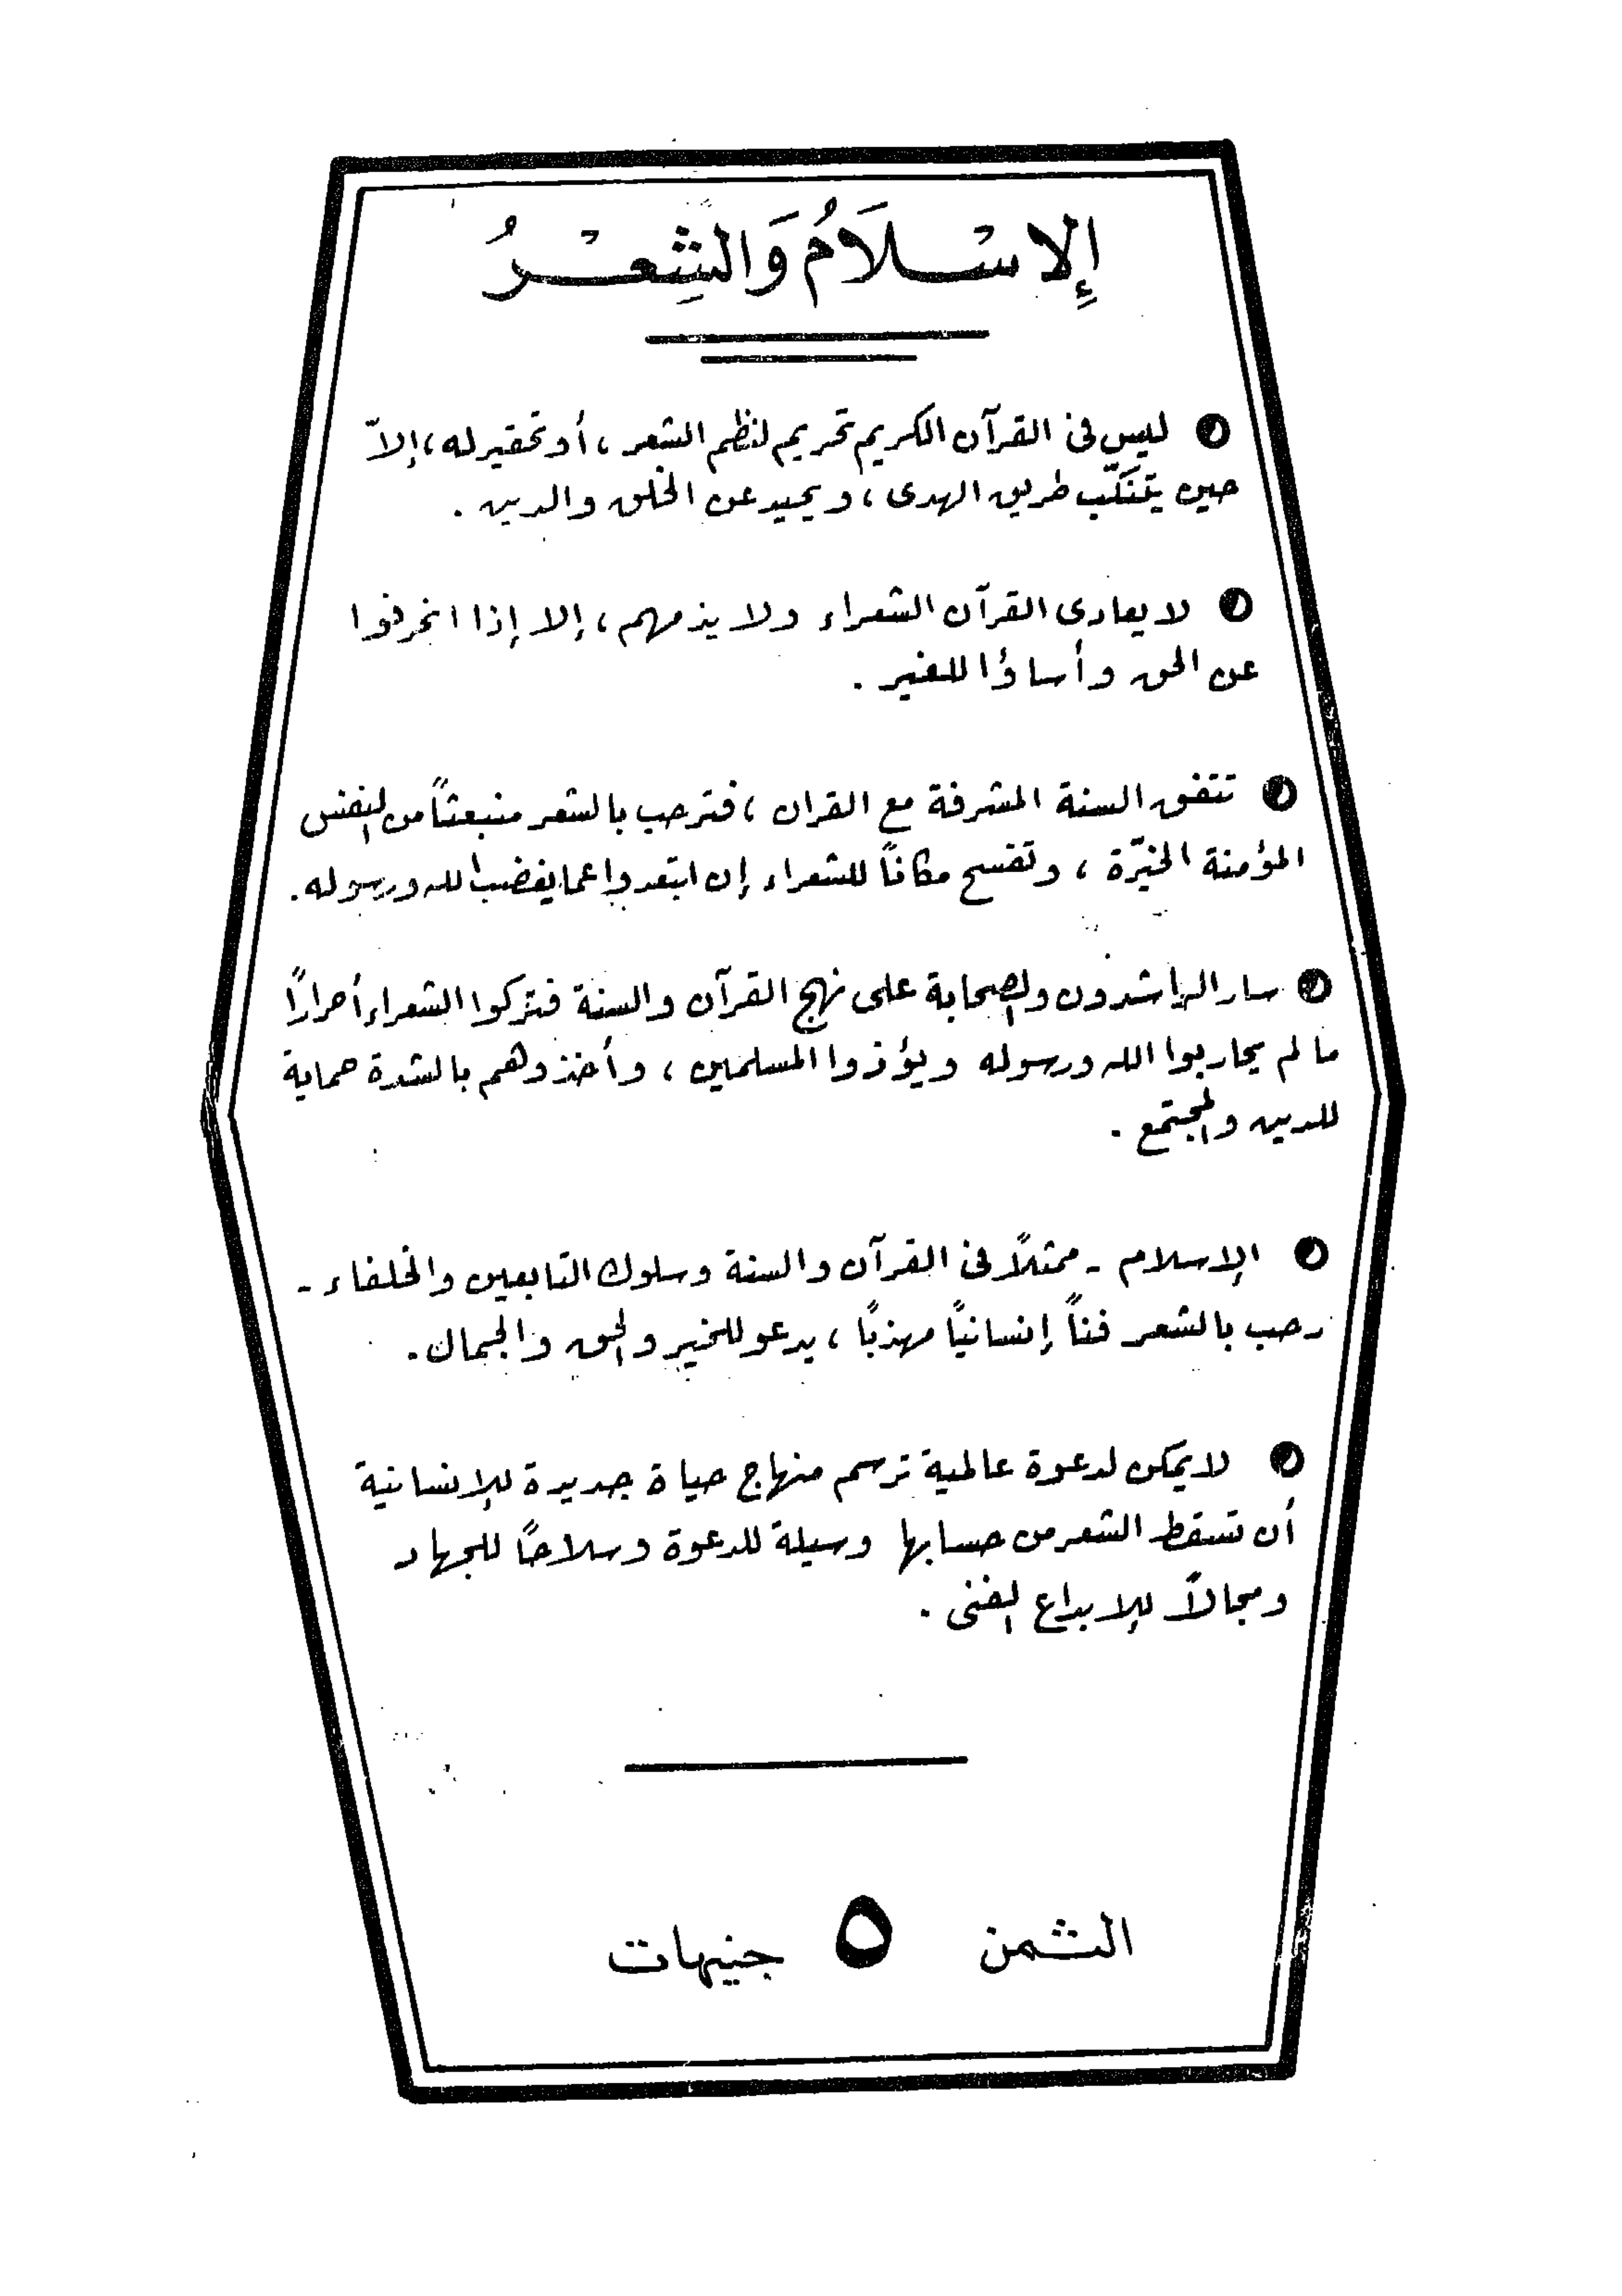 الإسْلَامُ وَالشِعْرُ
ليس فى القرآن الكريم تحريم لنظم الشعر ، أو تحقير له ، إلاّ
حين يتَنَكّب طريق الهدى ، ويحيد عن الخلق والدين .
لا يعادى القرآن الشعراء ولا يذمهم ، إلا إذا انحرفوا
عن الحق وأساؤا للغير .
تتفق السنة المشرفة مع القران ، فترحب بالشعر منبعثاً من النفس
المؤمنة الخيّرة ، وتفسح مكاناً للشعراء إن ابتعدوا عما يغضب الله ورسوله .
سار الراشدون والصحابة على نهج القرآن والسنة فتركوا الشعراء أحراراً
ما لم يحاربوا الله ورسوله ويؤذوا المسلمين ، وأخذوهم بالشدة حماية
للدين والمجتمع .
الإسلام - ممثلاً فى القرآن والسنة وسلوك التابعين والخلفاء -
رحب بالشعر فناً إنسانياً مهذباً ، يدعو للخير والحق والجمال .
لا يمكن لدعوة عالمية ترسم منهاج حياة جديدة للإنسانية
أن تسقط الشعر من حسابها وسيلة للدعوة وسلاحاً للجهاد
ومجالاً للإبداع الفنى .
الثمن ٥ جنيهات